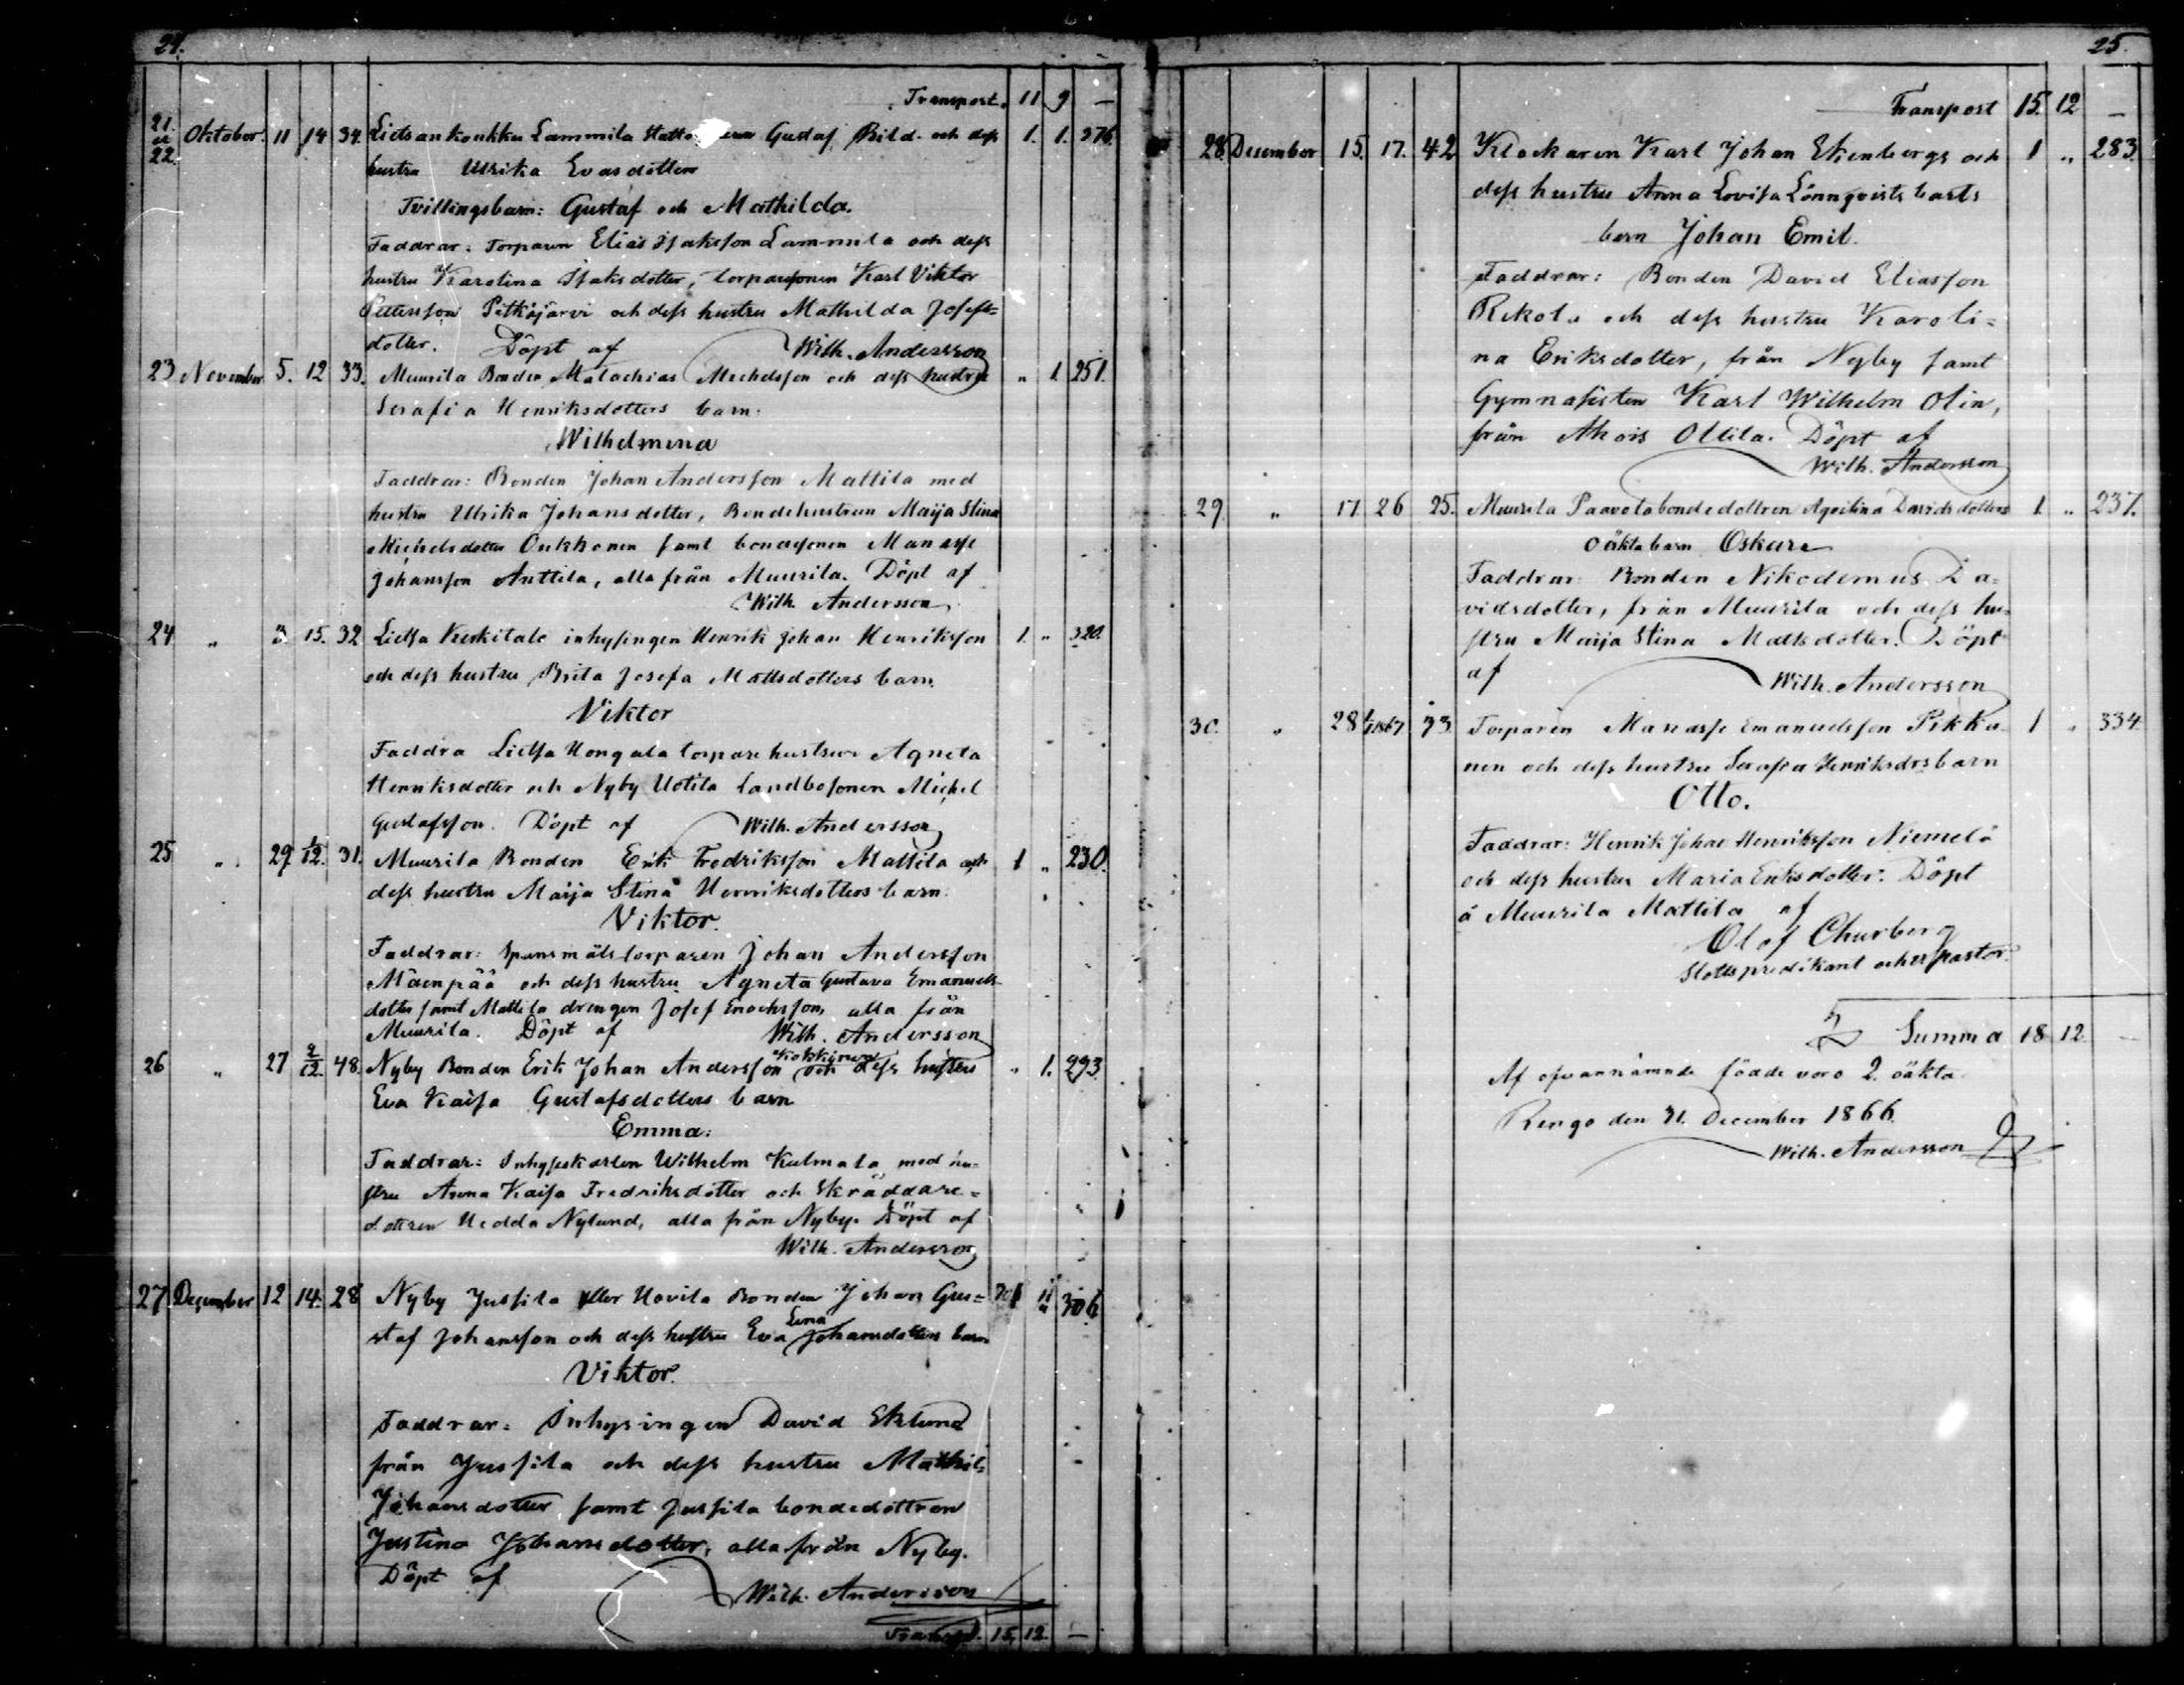 24.
Transport. 11 9 —
21. o 22. Oktober. 11 14 34. Lietsankoukku Lammila Gustaf Bild och dess 1. 1. 376
hustru Ulrika Evasdotters
Tvillingsbarn: Gustaf och Mathilda.
Faddrar: Torparen Elias Isaksson Lammila och dess
hustru Karolina Isaksdotter, torparesonen Karl Viktor
Petersson Pitkäjärvi och dess hustru Mathilda Josefs=
dotter. Döpt af Wilh. Andersson
23 November 5. 12 33. Muurila Bonden Malachias Michelsson och dess hustru „ 1. 251.
Serafia Henriksdotters barn.
Wilhelmina
Faddrar: Bonden Johan Andersson Mattila med
hustru Ulrika Johansdotter, Bondehustrun Maija Stina
Michelsdotter Oukkonen samt bondesonen Manasse
Johansson Anttila, alla från Muurila. Döpt af
Wilh. Andersson
24 „ 3. 15. 32 Lietsa Keskitalo inhysingen Henrik Johan Henriksson 1. „ 320.
och dess hustru Brita Josefa Mattsdotters barn.
Viktor
Faddra Lietsa Hongala torparehustrun Agneta
Henriksdotter och Nyby Uotila landbosonen Michel
Gustafsson. Döpt af Wilh. Andersson
25 „ 29 1/12. 31. Muurila Bonden Erik Fredriksson Mattila och 1 „ 230.
dess hustru Maija Stina Henriksdotters barn.
Viktor.
Faddrar: Spanmålstorparen Johan Andersson
Mäenpää och dess hustru Agneta Gustava Emanuels-
dotter samt Mattila drengen Josef Enochsson, alla från
Muurila. Döpt af Wilh. Andersson
26 „ 27 2/12. 48. Nyby Bonden Erik Johan Andersson Kokkinen och dess hustru „ 1. 293.
Eva Kaisa Gustafsdotters barn
Emma.
Faddrar: Inhyseskarlen Wilhelm Kulmala med hu=
stru Anna Kaisa Fredriksdotter och Skräddare=
dottren Hedda Nylund, alla från Nyby. Döpt af
Wilh. Andersson
27 December 12 14. 28 Nyby Jussila eller Uovila Bonden Johan Gus= 306
staf Johansson och dess hustru Eva Lena Johansdotters barn
Viktor.
Faddrar: Inhysingen David Eklund
från Jussila och dess hustru Mathil=
Johansdotter samt Jussila bondedottren
Justina Johansdotter, alla från Nyby.
Döpt af Wilh. Andersson
Transp. 15. 12. —
25.
Transport 15. 12 —
28 December 15. 17. 42 Klockaren Karl Johan Ekenbergs och 1 „ 283.
dess hustru Anna Lovisa Lönnqvists barts
barn Johan Emil.
Faddrar: Bonden David Eliasson
Rekola och dess hustru Karoli=
na Eriksdotter, från Nyby samt
Gymnasisten Karl Wilhelm Olin,
från Ahois Ollila. Döpt af
Wilh. Andersson
29. „ 17 26 25. Muurila Paavola bondedottren Agvilina Davidsdotters 1. „ 237.
oäkta barn Oskar
Faddrar: Bonden Nikodemus Da=
vidsdotter, från Muurila och dess hu=
stru Maija Stina Mattsdotter. Döpt
af Wilh. Andersson
30. „ 28 1/1 1867 33 Torparen Manasse Emanuelsson Pikka- 1 „ 334.
nen och dess hustru Serafia Henriksdrs barn
Otto.
Faddrar: Henrik Johan Henriksson Niemelä
och dess hustru Maria Eriksdotter. Döpt
å Muurila Mattila af
Olof Churberg
Slottspredikant och v. pastor.
Summa 18 12 —
Af ofvannämnde födde voro 2. oäkta.
Rengo den 31. December 1866.
Wilh. Andersson